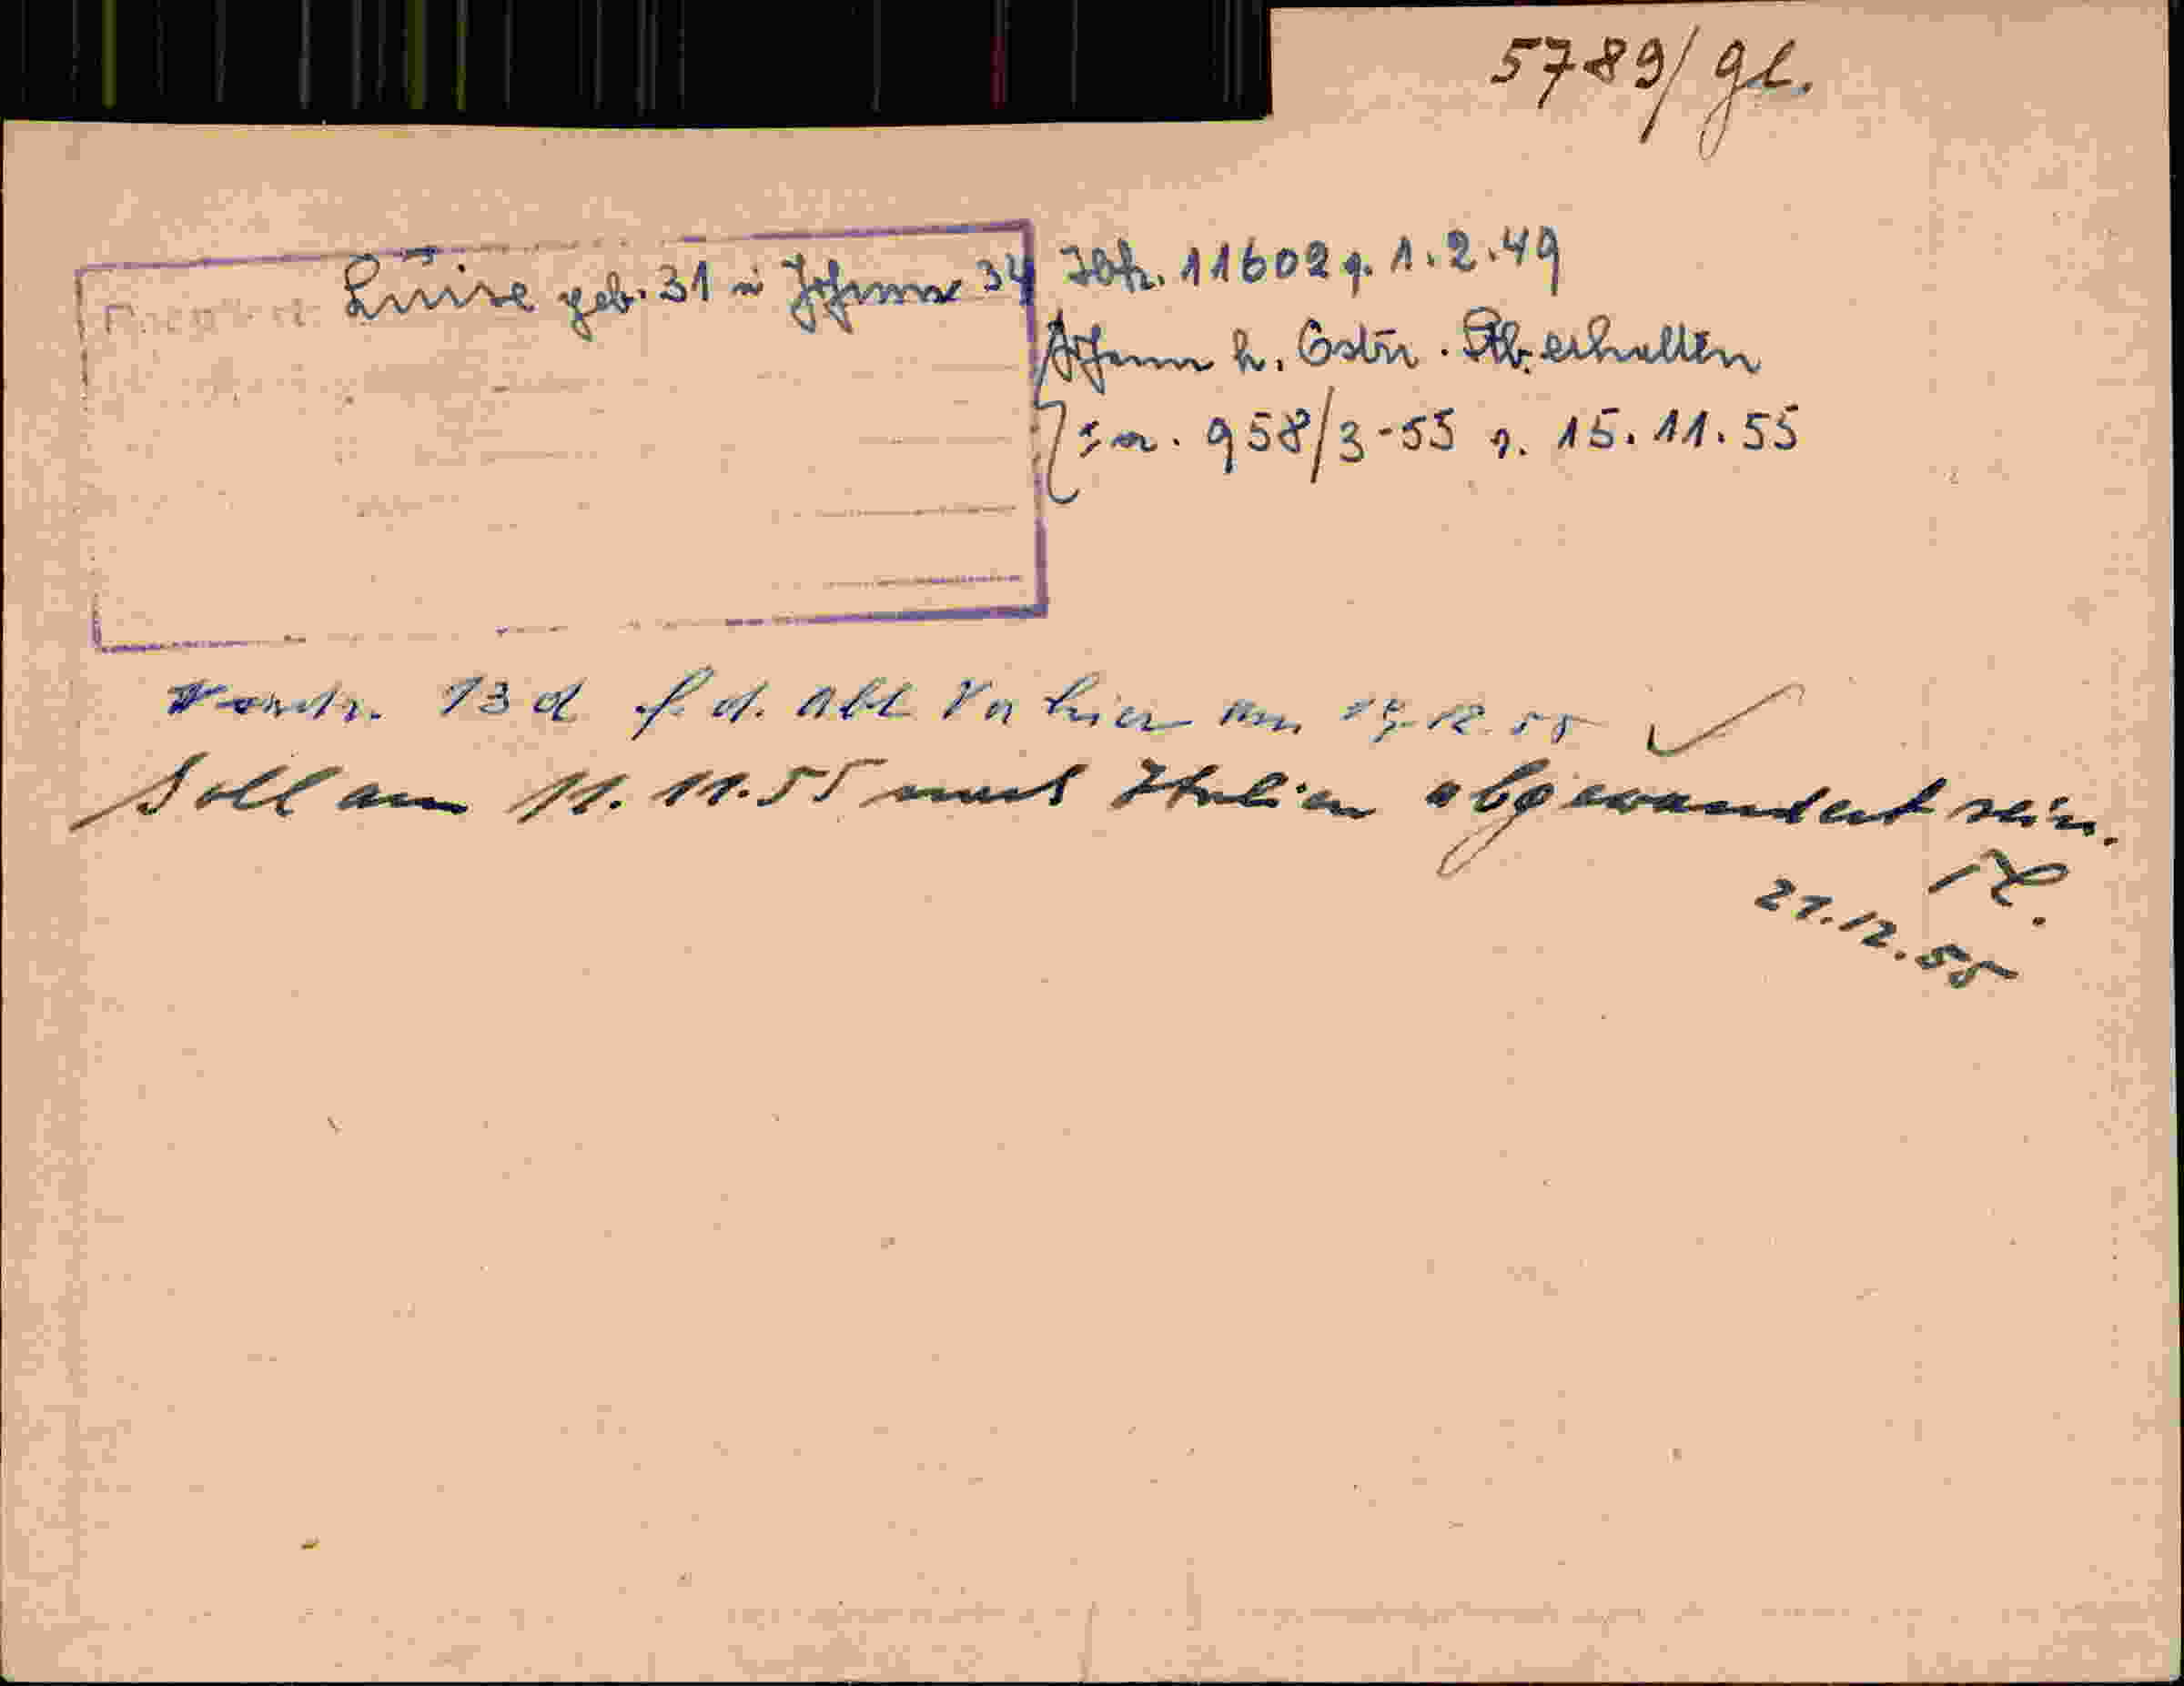 5789/gl.
Luise geb. 31 u Johann 34 11602 v. 1.2.49
Johann h. Östr. Stb. erhalten
958/3-55 v. 15.11.55
Vordr. 13 d f. d. Abt hier am 19.12.55
Soll am 11.11.55 nach Italien abgewandert sein.
21.12.55